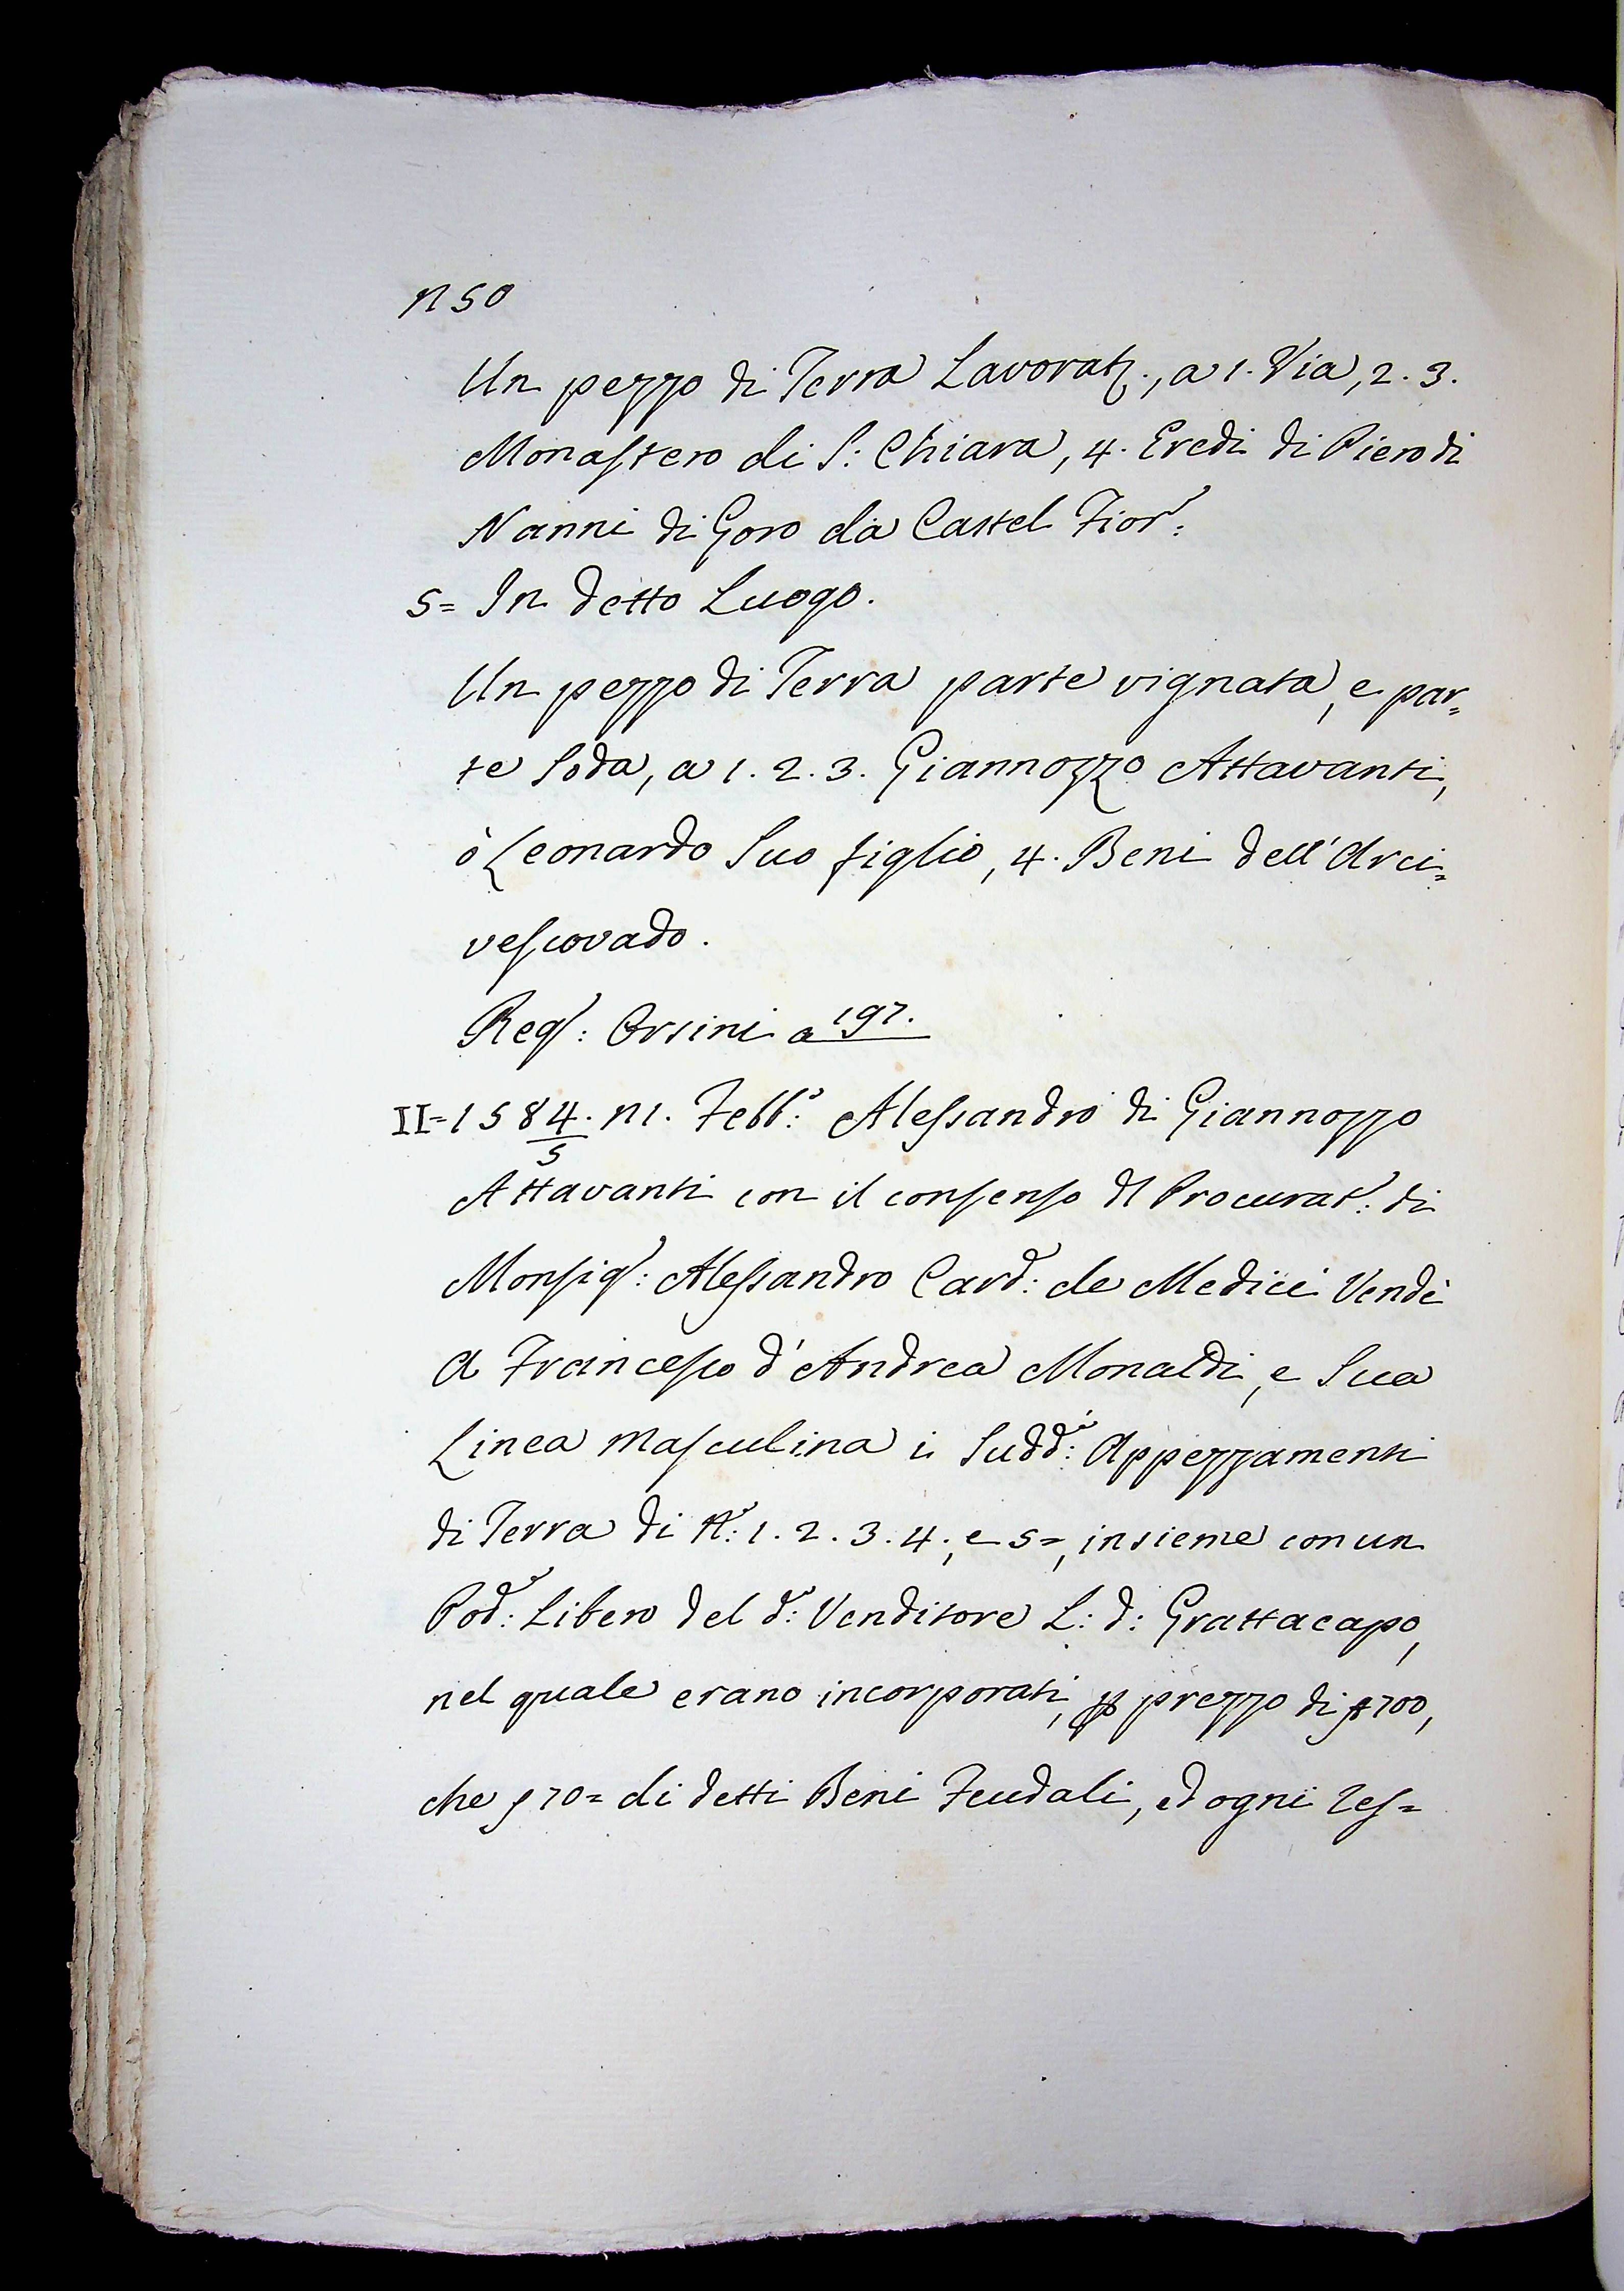 n 50
Un pezzo di Terra Lavorat:, a 1. Via, 2. 3.
Monastero di S: Chiara, 4. Eredi di Piero di
Nanni di Goro da Castel Fior:
5= In detto Luogo.
Un pezzo di Terra parte vignata, e par=
te Soda, a 1. 2. 3. Giannozzo Attavanti,
ò Leonardo Suo figlio, 4. Beni dell' Arci=
vescovado.
Reg: Orsini a 197.
II= 1584/5. 11. Febb: Alessandro di Giannozzo
Attavanti con il consenso dl Procurat: di
Monsig: Alessandro Card: de Medici Vendè
a Francesco d' Andrea Monaldi, e Sua
Linea Masculina i Sudd: Appezzamenti
di Terra di N: 1. 2. 3. 4., e 5=, insieme con un
Pod: Libero del d: Venditore L: d: Grattacapo,
nel quale erano incorporati, p prezzo di f 700,
che f 70= di detti Beni Feudali, ed ogni res=